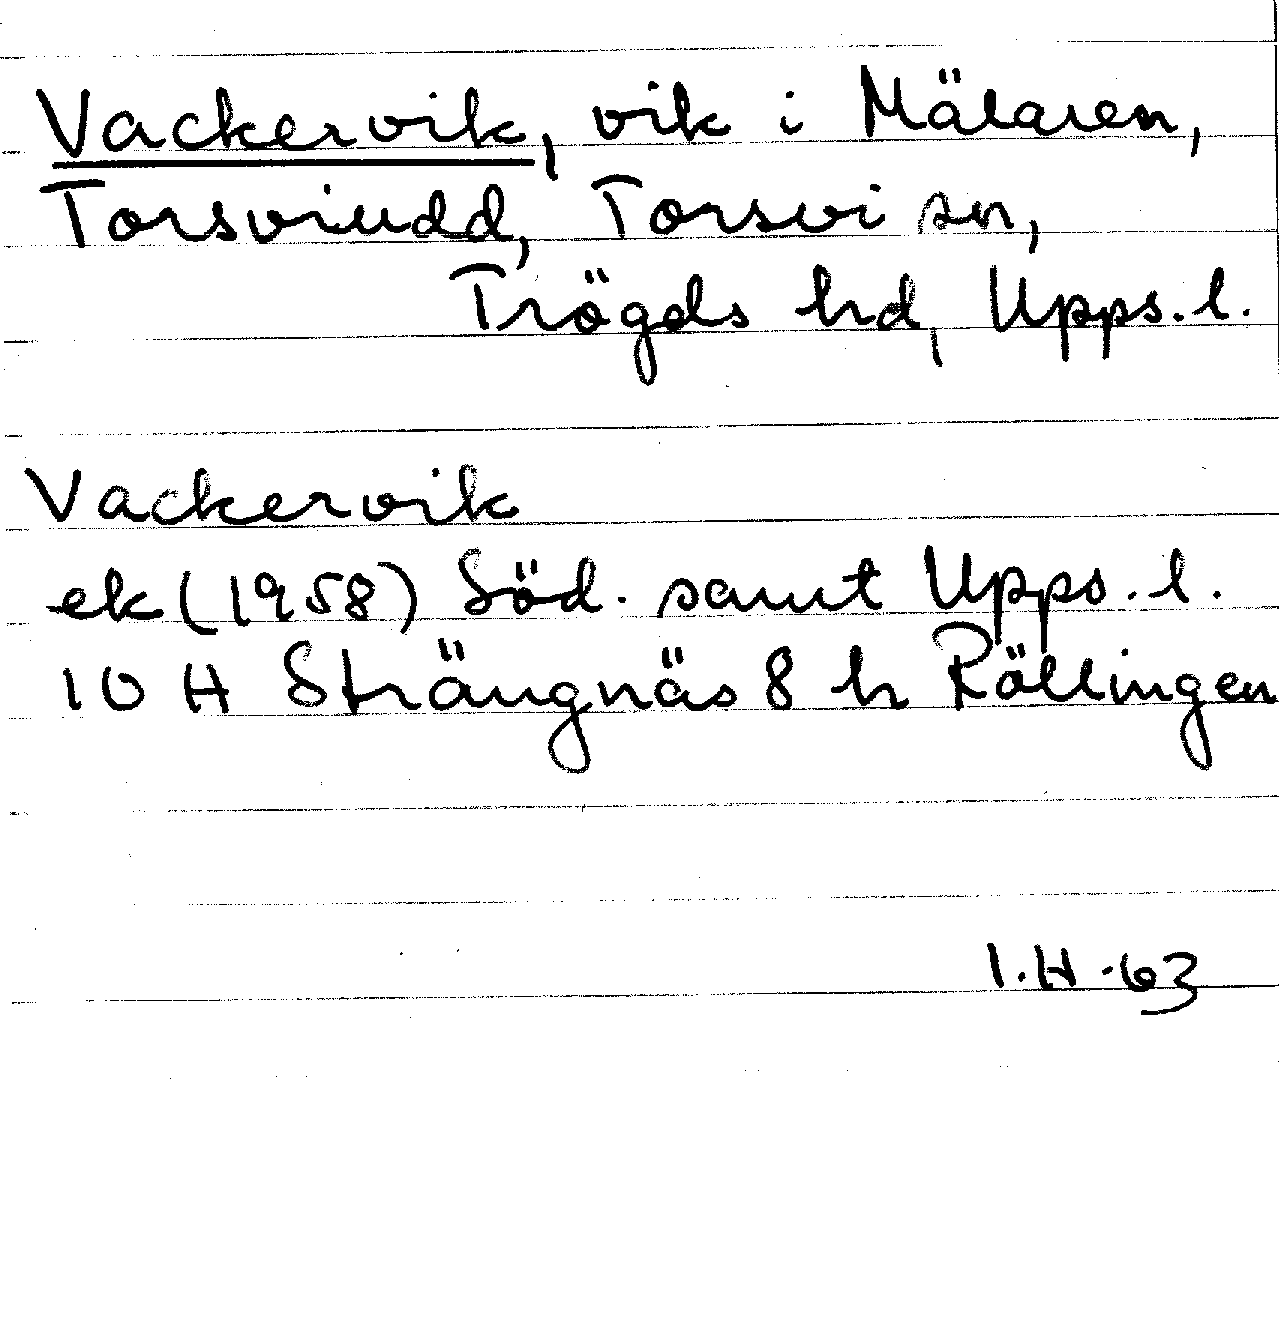 Vackervik, vik i Mälaren,
Torsviudd, Torsvi sn,
Trögds hd, Upps. l.
Vackervik
ek (1958) Söd. samt Upps. l.
10 H Strängnäs 8 h Röllingen
I.H.-63